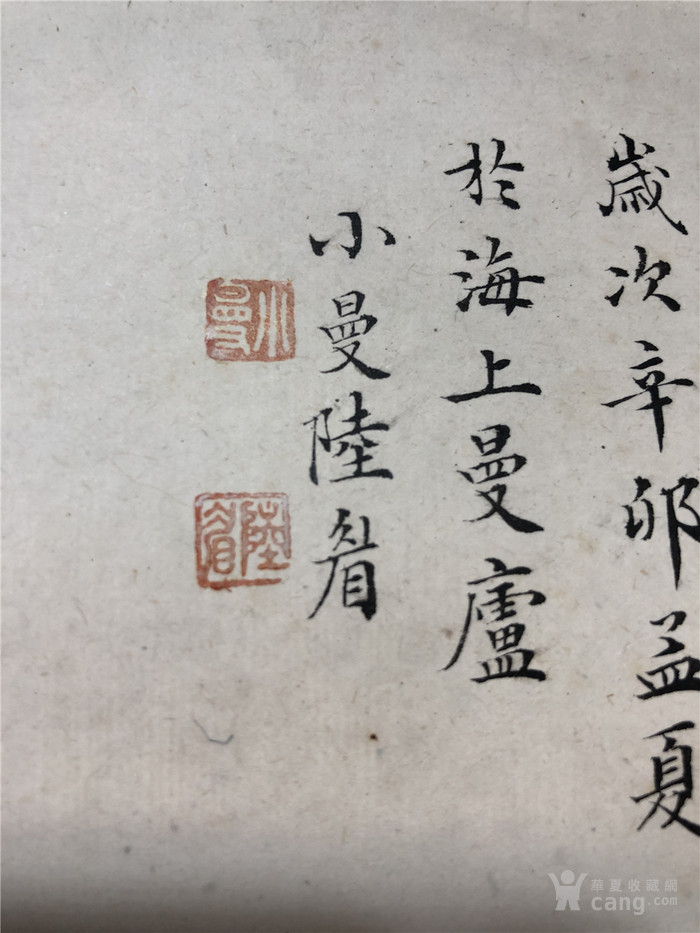 歲次辛卯孟夏
於海上曼廬
小曼陸眉
小曼
陸眉
華夏收藏網
cang.com